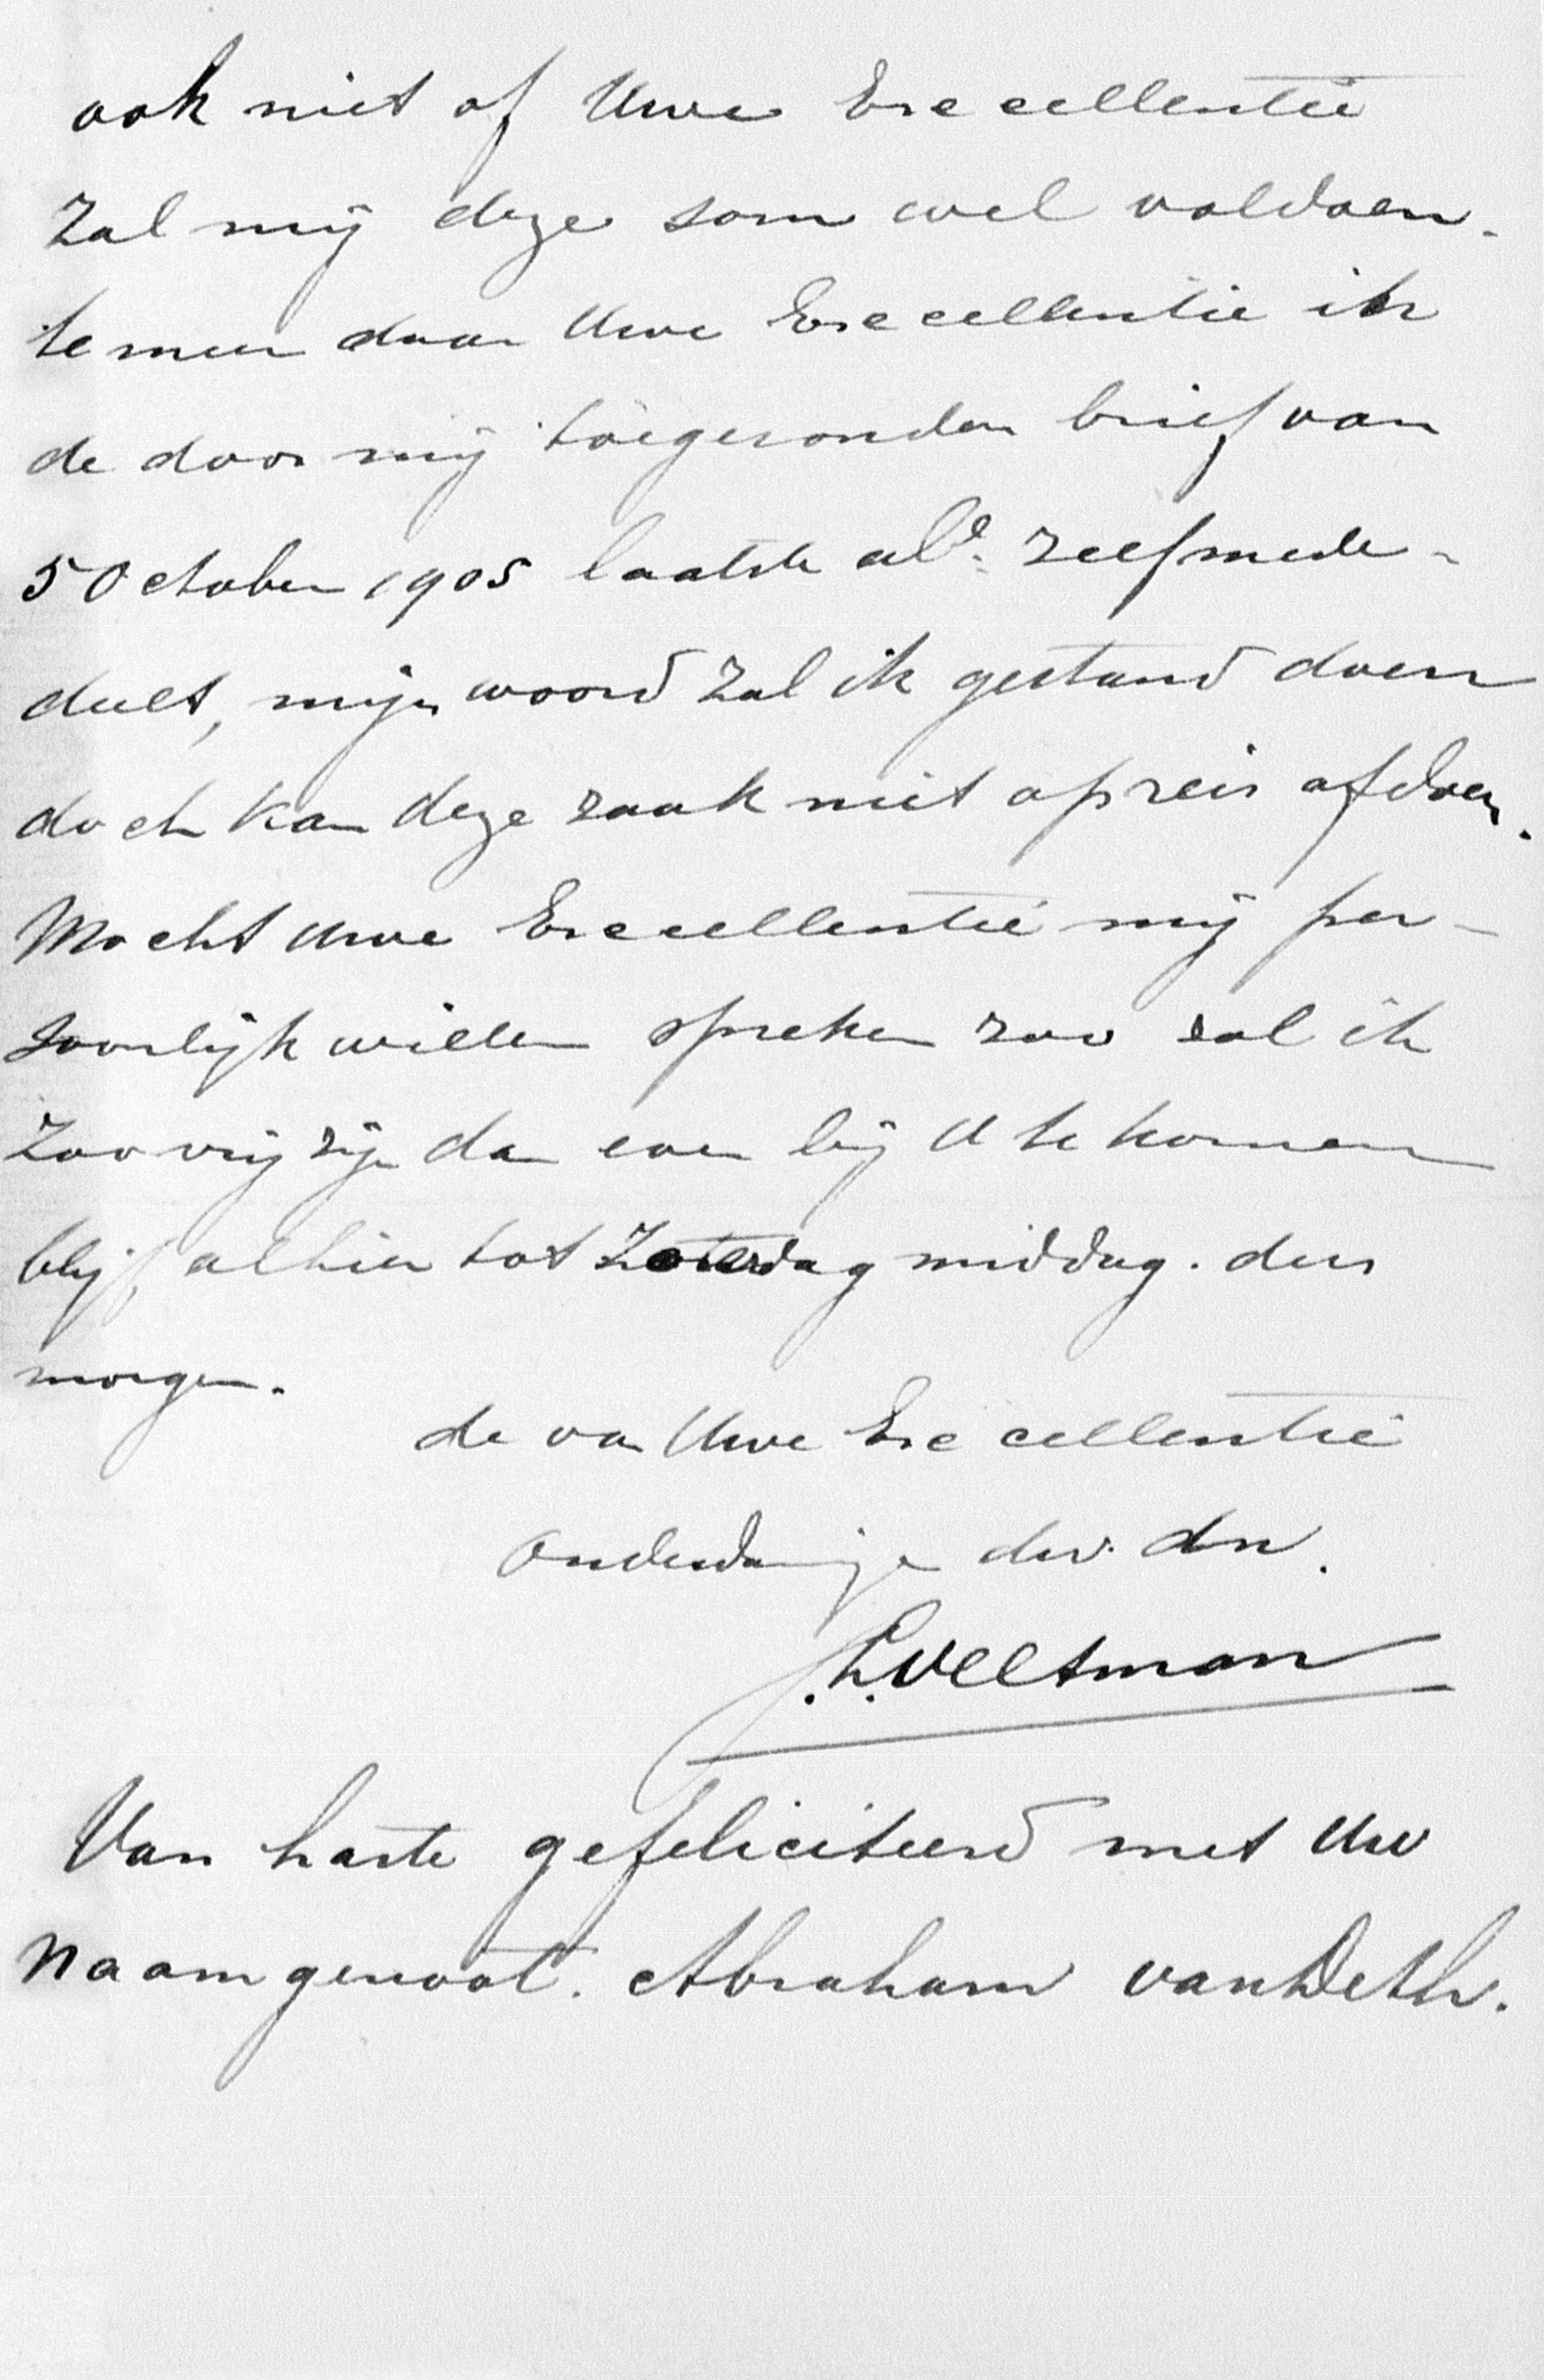 ook niet of Uwe Excellentie
zal mij deze som wel voldoen.
te meer daar Uwe Excellentie in
de door mij toegezonden brief van
5 October 1905 laatste al: zelf mede-
deelt, mijn woord zal ik gestand doen
doch kan deze zaak niet op reis afdoen.
Mocht Uwe Excellentie mij per-
soonlijk willen spreken zoo zal ik
zoo vrij zijn dan even bij U te komen
blijf alhier tot Zaterdag middag. dus
morgen.
de van Uwe Excellentie
Onderdanige dw. dn.
J.L. Veltman
Van harte gefeliciteerd met Uw
Naamgenoot. Abraham van Deth.